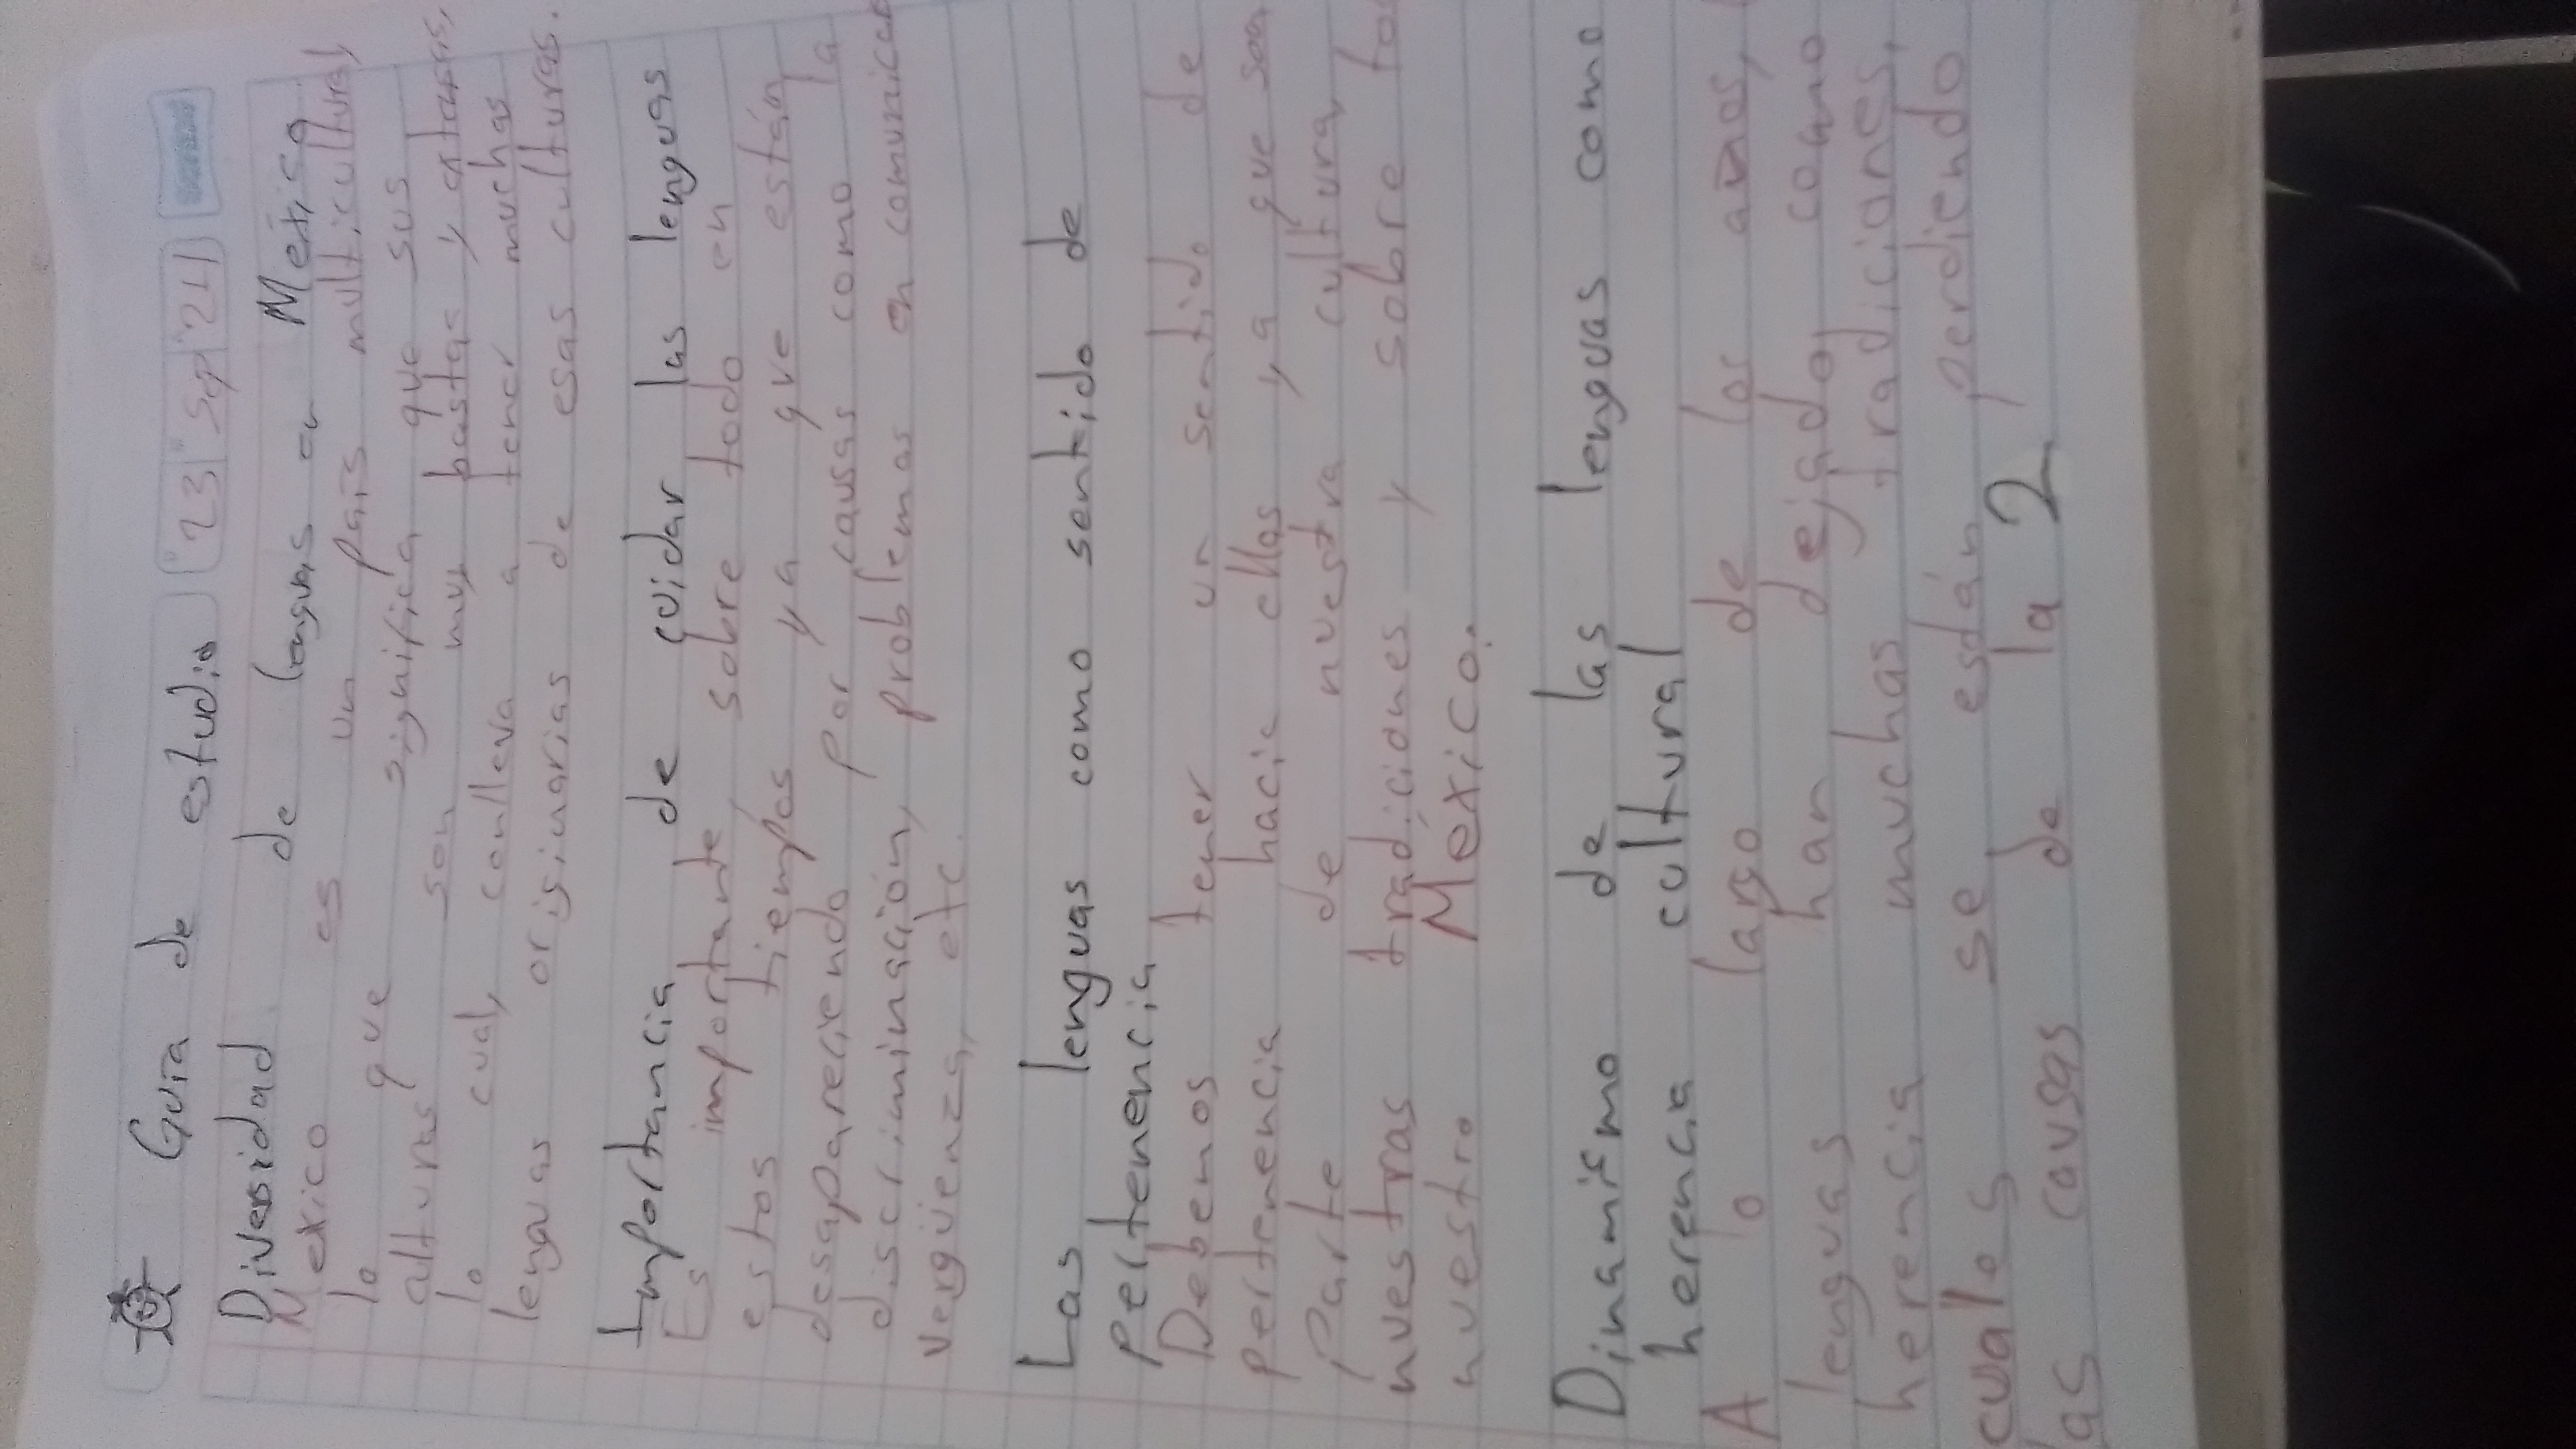 Guía de estudio 23 Sep 24
Diversidad de lenguas en México
México es un país multicultural,
lo que significa que sus
culturas son muy bastas y extensas,
lo cual, conlleva a tener muchas
lenguas originarias de esas culturas.
Importancia de cuidar las lenguas
Es importante sobre todo en
estos tiempos ya que están
desapareciendo por causas como la
discriminación, problemas en comunicac
vergüenza, etc.
Las lenguas como sentido de
pertenencia
Debemos tener un sentido de
pertenencia hacia ellas ya que son
Parte de nuestra cultura,
nuestras tradiciones y sobre to
nuestro México.
Dinamismo de las lenguas como
herencia cultural
A lo largo de los años, l
lenguas han dejado como
herencia muchas tradiciones,
cuales se están perdiendo
las causas de la 2,